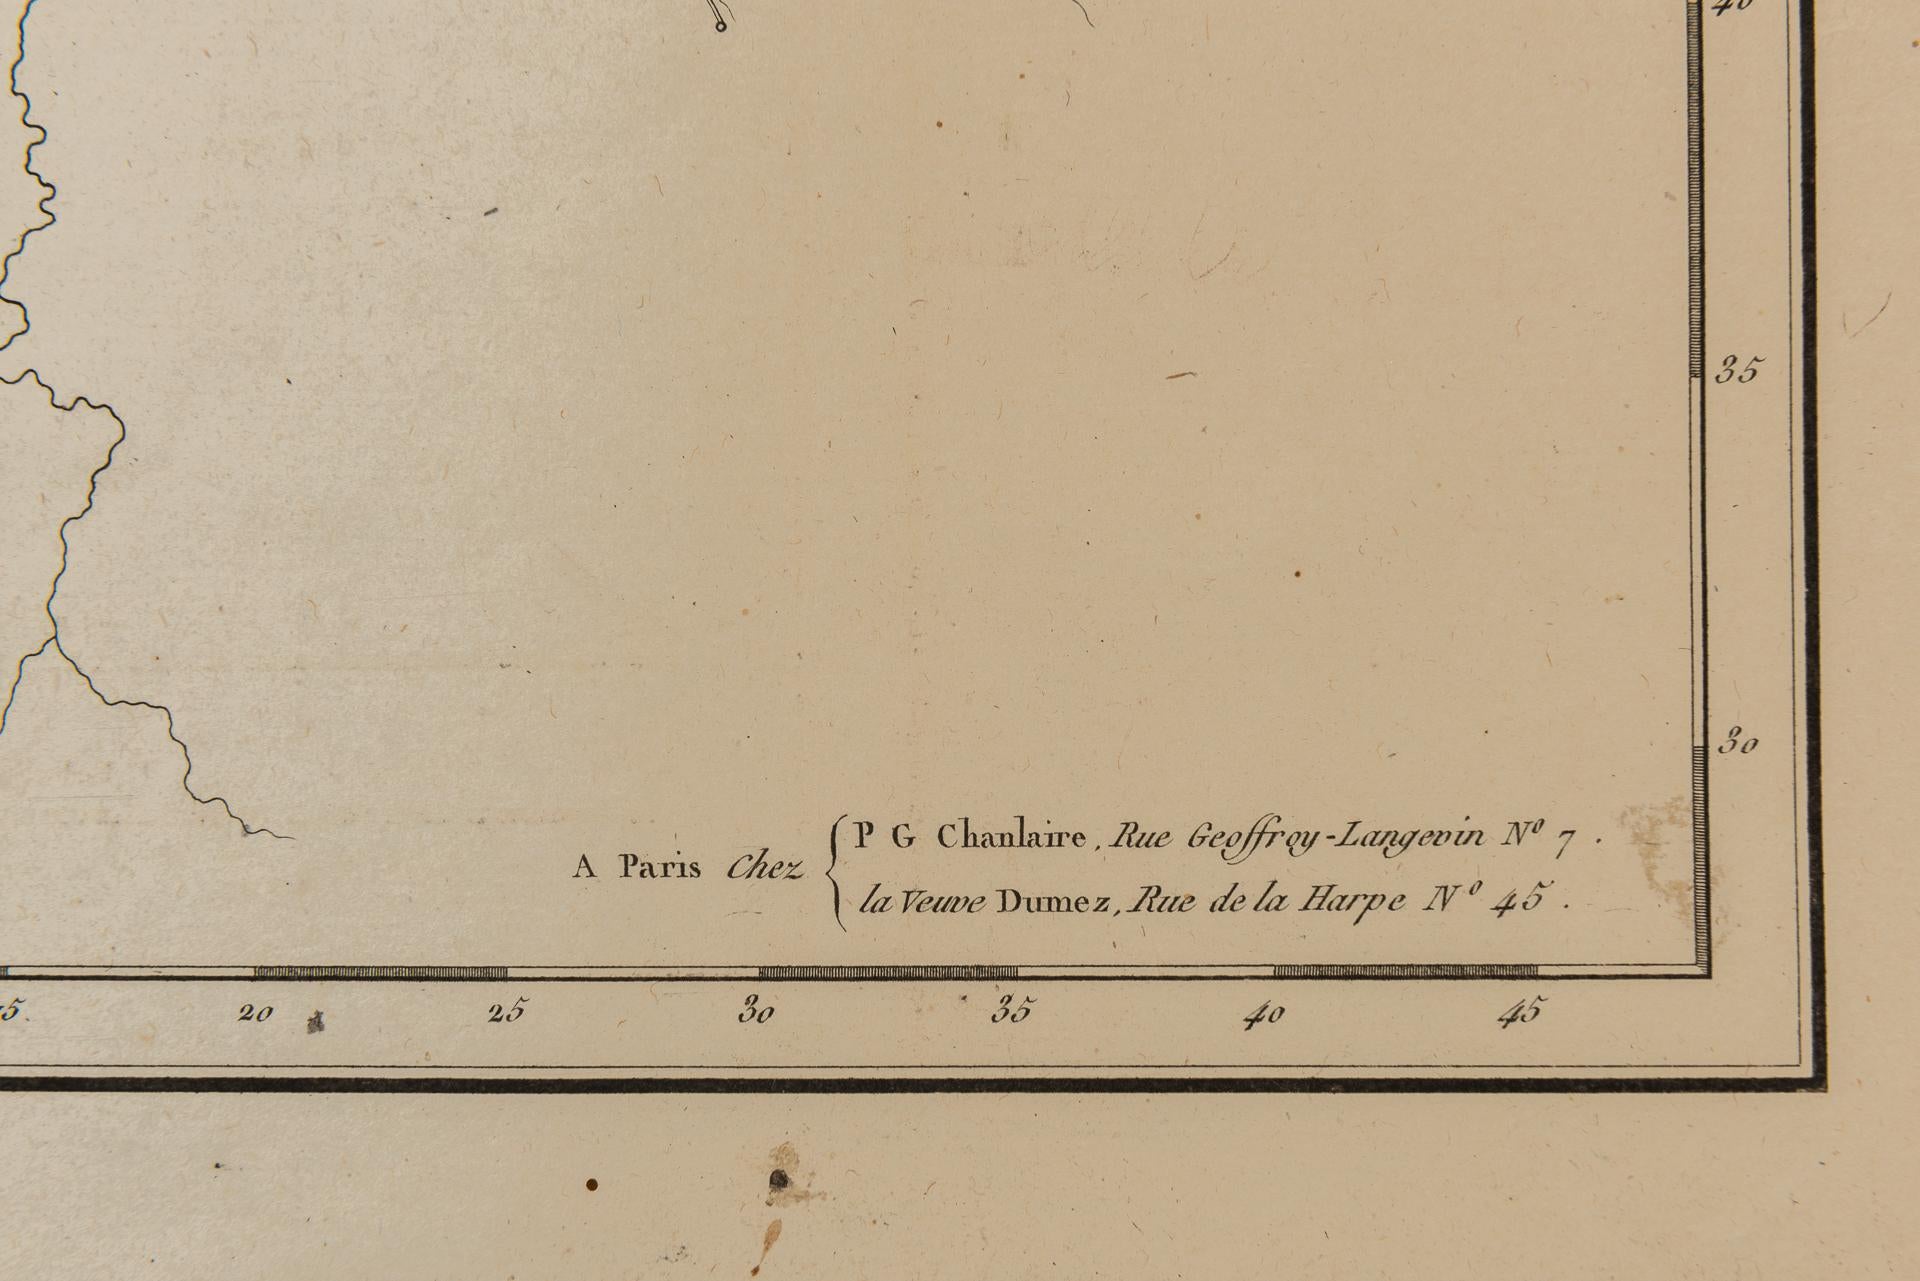 40
35
30
A Paris Chez { P G Chanlaire, Rue Geoffroy-Langevin Nº 7.
la Veuve Dumez, Rue de la Harpe Nº 45.
20 25 30 35 40 45